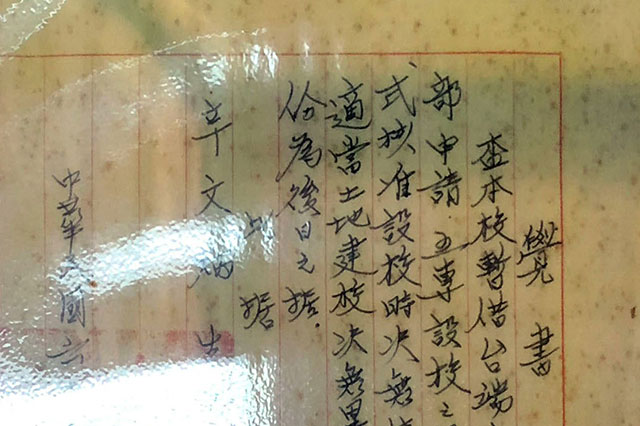 覺書
查本校暫借台端
部申請五專設校之
式核准設校時決無
適當土地建校決無異
份為後日之据.
此据
辛文炳
中華民國六